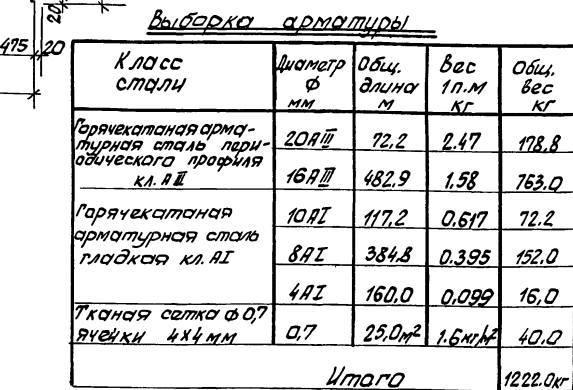 20
475 20
Выборка арматуры
Класс стали
Диаметр ф мм
Общ. длина м
Вес 1п.м кг
Общ. вес кг
Горячекатаная арма-
турная сталь пери-
одического профиля
кл. АIII
20АIII 72,2 2.47 178.8
16АIII 482.9 1.58 763.0
Горячекатаная
арматурная сталь
гладкая кл. АI
10АI 117,2 0.617 72.2
8АI 384.8 0.395 152,0
4АI 160.0 0,099 16,0
Тканая сетка ф 0,7
ячейки 4х4 мм 0,7 25,0м² 1.6кг/м² 40.0
Итого 1222.0кг